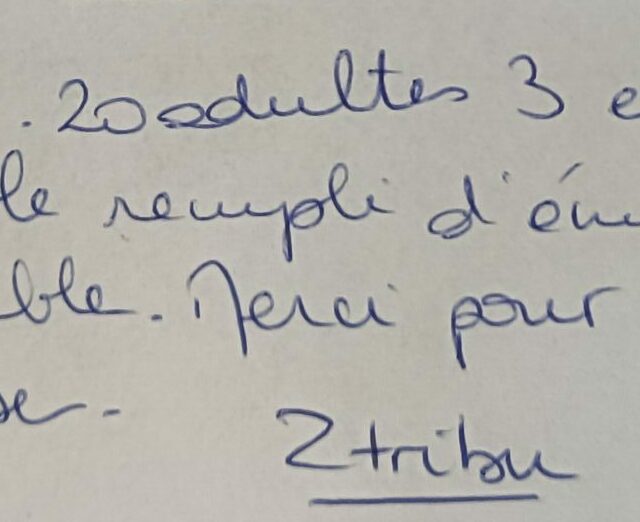 . 20 adultes 3 e
le rempli d'ém
ble. Merci pour
se.
Z tribu